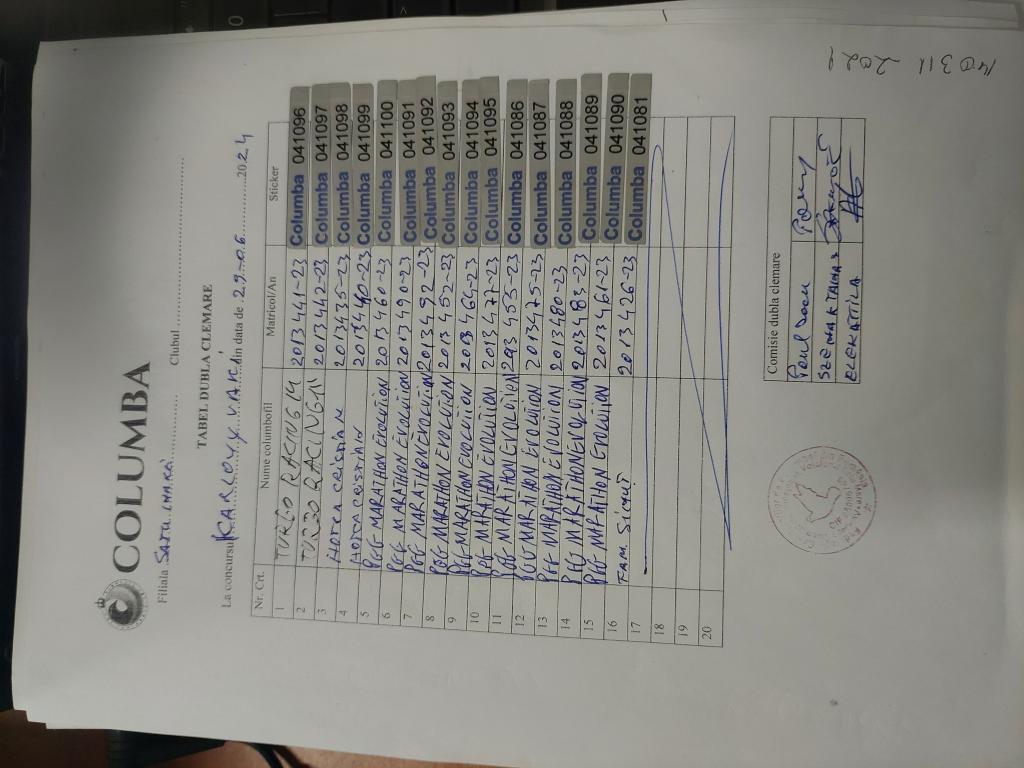 COLUMBA
Filiala SATU MARE Clubul
TABEL DUBLA CLEMARE
La concursul KARLOVY VARI din data de 29-06 2024
Nr. Crt. Nume columbofil Matricol/An Sticker
1 TURBO RACING 11 2013441-23 Columba 041096
2 TURBO RACING 11 2013442-23 Columba 041097
3 2013435-23 Columba 041098
4 2013440-23 Columba 041099
5 PEG MARATHON EVOLUTION 2013460-23 Columba 041100
6 PEG MARATHON EVOLUTION 2013490-23 Columba 041091
7 PEG MARATHON EVOLUTION 2013492-23 Columba 041092
8 PEG MARATHON EVOLUTION 2013452-23 Columba 041093
9 PEG MARATHON EVOLUTION 2013464-23 Columba 041094
10 PEG MARATHON EVOLUTION 2013477-23 Columba 041095
11 PEG MARATHON EVOLUTION 453-23 Columba 041086
12 PEG MARATHON EVOLUTION 2013475-23 Columba 041087
13 PEG MARATHON EVOLUTION 2013480-23 Columba 041088
14 PEG MARATHON EVOLUTION 2013483-23 Columba 041089
15 PEG MARATHON EVOLUTION 2013461-23 Columba 041090
16 FAM. 2013426-23 Columba 041081
17
18
19
20
Comisie dubla clemare
140311 2021